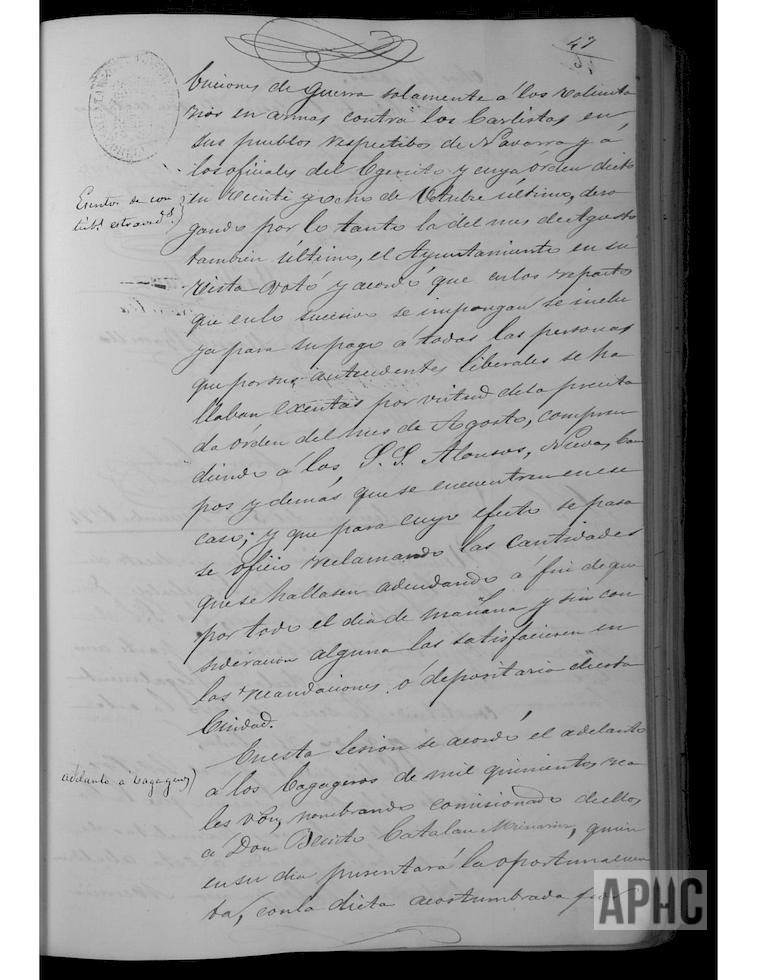 47
buciones de guerra solamente á los volunta
rios en armas contra los Carlistas en
sus pueblos respectibos de Navarra y á
los oficiales del Egercito y cuya órden dicto
Esentos de con
tribs. estraords.
su veinti y ocho de Octubre último, dero
gando por lo tanto la del mes de Agosto
tambien último, el Ayuntamiento en su
vista votó y acordó que en los reparto
que en lo sucesivo se impongan se inclu
ya para su pago a todas las personas
que por sus antecedentes liberales se ha
llaban exentas por virtud de la precita
da órden del mes de Agosto, compren
diendo á los S.S. Alonsos, Nuevas, Cam
pos y demás que se encuentren en ese
caso; y que para cuyo efecto se pasa
se oficio reclamando las cantidades
que se hallasen adeudando a fin de que
por todo el dia de mañana y sin con
sideracion alguna las satisfacieren en
las recaudaciones o depositaria de esta
Ciudad.
En esta sesion se acordó el adelanto
adelanto a bagageros
á los bagageros de mil quinientos rea
les von, nombrando comisionado de ellos
a Don Benito Catalan, quien
en su dia presentará la oportuna cuen
ta, con la dieta acostumbrada por
APHC